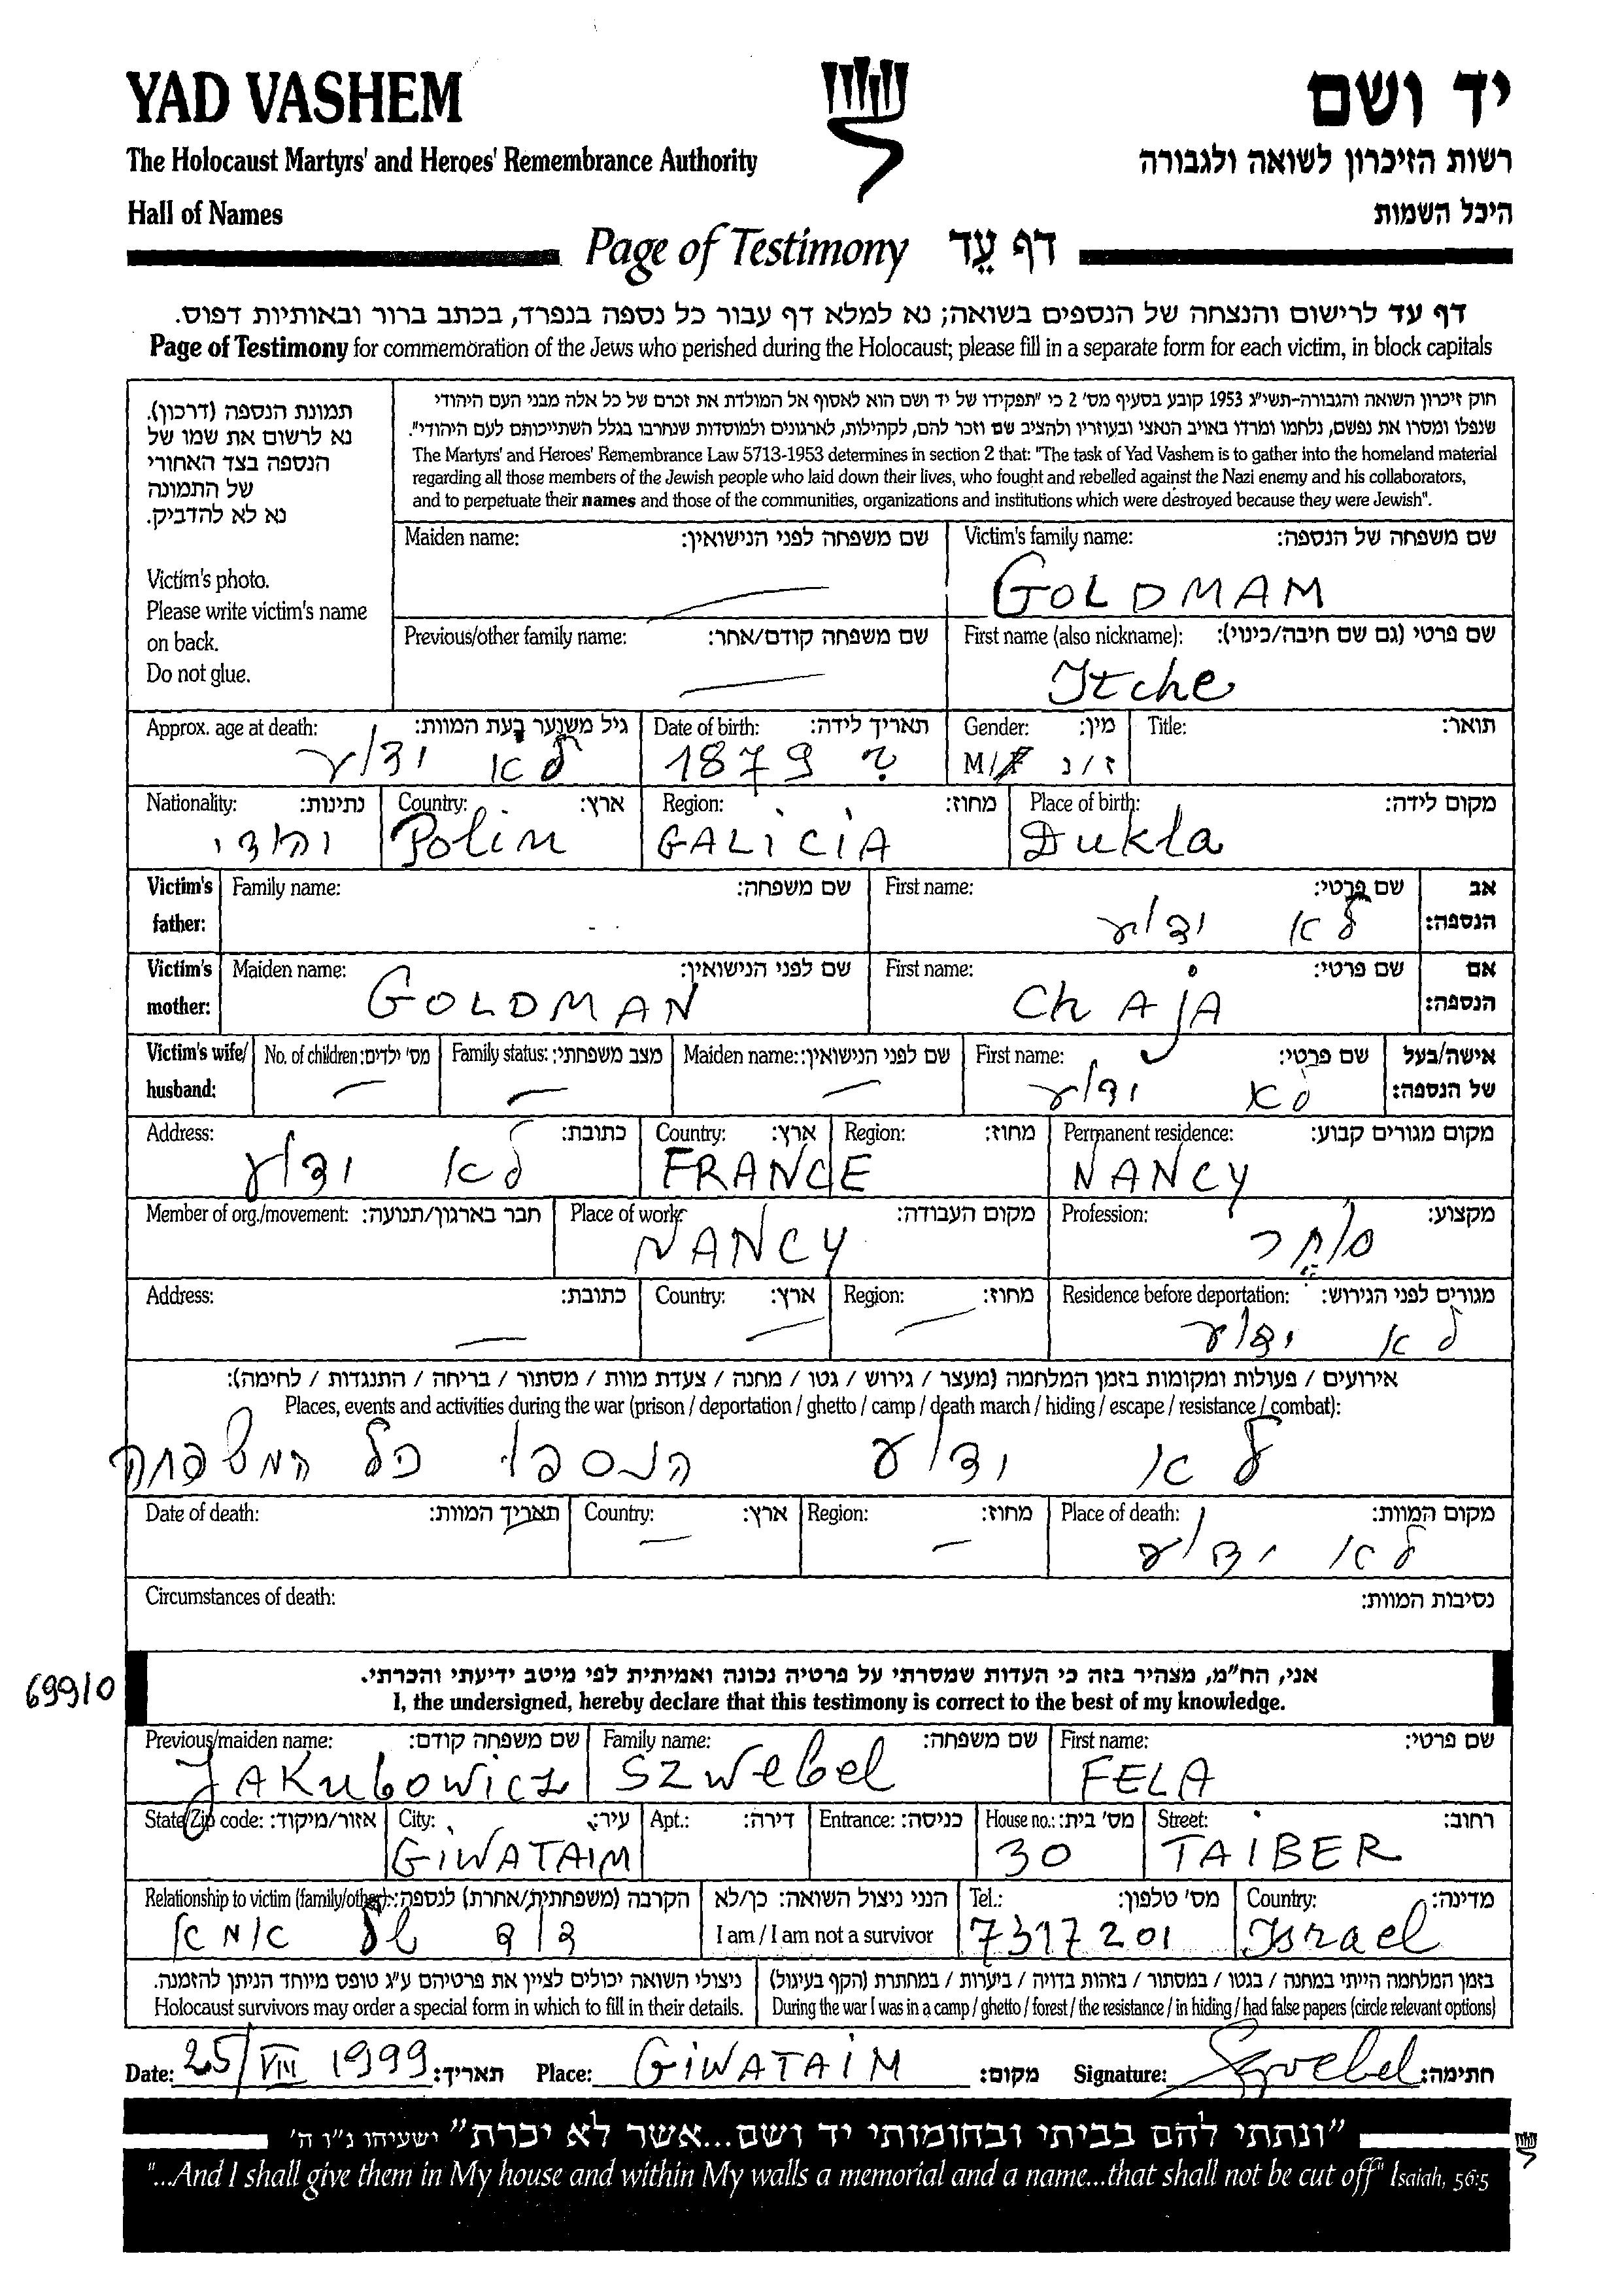 YAD VASHEM
יד ושם
The Holocaust Martyrs' and Heroes' Remembrance Authority
רשות הזיכרון לשואה ולגבורה
Hall of Names
היכל השמות
Page of Testimony דף עֵד
דף עד לרישום והנצחה של הנספים בשואה; נא למלא דף עבור כל נספה בנפרד, בכתב ברור ובאותיות דפוס.
Page of Testimony for commemoration of the Jews who perished during the Holocaust; please fill in a separate form for each victim, in block capitals
תמונת הנספה (דרכון).
נא לרשום את שמו של
הנספה בצד האחורי
של התמונה
נא לא להדביק.
Victim's photo.
Please write victim's name
on back.
Do not glue.
חוק זיכרון השואה והגבורה-תשי"ג 1953 קובע בסעיף מס' 2 כי "תפקידו של יד ושם הוא לאסוף אל המולדת את זכרם של כל אלה מבני העם היהודי
שנפלו ומסרו את נפשם, נלחמו ומרדו באויב הנאצי ובעוזריו ולהציב שם וזכר להם, לקהילות, לארגונים ולמוסדות שנחרבו בגלל השתייכותם לעם היהודי".
The Martyrs' and Heroes' Remembrance Law 5713-1953 determines in section 2 that: "The task of Yad Vashem is to gather into the homeland material
regarding all those members of the Jewish people who laid down their lives, who fought and rebelled against the Nazi enemy and his collaborators,
and to perpetuate their names and those of the communities, organizations and institutions which were destroyed because they were Jewish".
Maiden name: שם משפחה לפני הנישואין: Victim's family name: שם משפחה של הנספה:
GOLDMAM
Previous/other family name: שם משפחה קודם/אחר: First name (also nickname): שם פרטי (גם שם חיבה/כינוי):
Itche
Approx. age at death: גיל משוער בעת המוות: Date of birth: תאריך לידה: Gender: מין: Title: תואר:
לא ידוע 1879 ? M/F ז/נ
Nationality: נתינות: Country: ארץ: Region: מחוז: Place of birth: מקום לידה:
יהודי Polin GALICIA Dukla
Victim's father: Family name: שם משפחה: First name: שם פרטי: אב הנספה:
לא ידוע
Victim's mother: Maiden name: שם לפני הנישואין: First name: שם פרטי: אם הנספה:
GOLDMAN ChAjA
Victim's wife/husband: No. of children: מס' ילדים: Family status: מצב משפחתי: Maiden name: שם לפני הנישואין: First name: שם פרטי: אישה/בעל של הנספה:
לא ידוע
Address: כתובת: Country: ארץ: Region: מחוז: Permanent residence: מקום מגורים קבוע:
לא ידוע FRANCE NANCY
Member of org./movement: חבר בארגון/תנועה: Place of work: מקום העבודה: Profession: מקצוע:
NANCY סוחר
Address: כתובת: Country: ארץ: Region: מחוז: Residence before deportation: מגורים לפני הגירוש:
לא ידוע
אירועים / פעולות ומקומות בזמן המלחמה (מעצר / גירוש / גטו / מחנה / צעדת מוות / מסתור / בריחה / התנגדות / לחימה):
Places, events and activities during the war (prison / deportation / ghetto / camp / death march / hiding / escape / resistance / combat):
לא ידוע הנספו כל המשפחה
Date of death: תאריך המוות: Country: ארץ: Region: מחוז: Place of death: מקום המוות:
לא ידוע
Circumstances of death: נסיבות המוות:
699/0
אני, הח"מ, מצהיר בזה כי העדות שמסרתי על פרטיה נכונה ואמיתית לפי מיטב ידיעתי והכרתי.
I, the undersigned, hereby declare that this testimony is correct to the best of my knowledge.
Previous/maiden name: שם משפחה קודם: Family name: שם משפחה: First name: שם פרטי:
JAKubowicz SZWebel FELA
State/Zip code: אזור/מיקוד: City: עיר: Apt.: דירה: Entrance: כניסה: House no.: מס' בית: Street: רחוב:
GIWATAIM 30 TAIBER
Relationship to victim (family/other): הקרבה (משפחתית/אחרת) לנספה: הנני ניצול השואה: כן/לא Tel.: מס' טלפון: Country: מדינה:
דוד של אמא I am / I am not a survivor 7317201 Israel
ניצולי השואה יכולים לציין את פרטיהם ע"ג טופס מיוחד הניתן להזמנה. בזמן המלחמה הייתי במחנה / בגטו / במסתור / בזהות בדויה / ביערות / במחתרת (הקף בעיגול)
Holocaust survivors may order a special form in which to fill in their details. During the war I was in a camp / ghetto / forest / the resistance / in hiding / had false papers (circle relevant options)
Date: 25/VIII 1999 תאריך: Place: GIWATAIM מקום: Signature: Szwebel חתימה:
"ונתתי להם בביתי ובחומותי יד ושם...אשר לא יכרת" ישעיהו נ"ו ה'
"...And I shall give them in My house and within My walls a memorial and a name...that shall not be cut off" Isaiah, 56:5